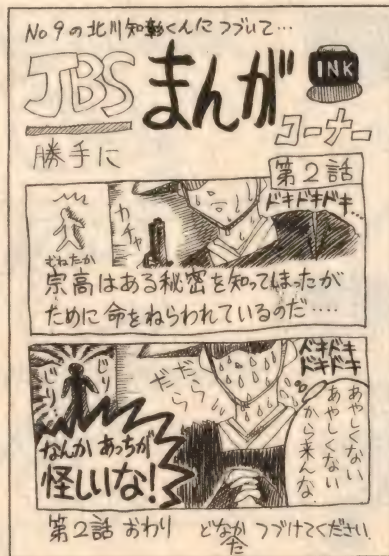 No9の北川知彰くんにつづいて…
JBS まんが
INK
コーナー
勝手に
第2話
ドキドキドキ…
カチャ
むねたか
宗高はある秘密を知ってしまったが
ために命をねらわれているのだ‥‥
ドキドキ
ドキドキ
じり
じり
だらだら
あやしくない
あやしくない
から来んな
なんか あっちが
怪しいな!
第2話 おわり どなたか つづけてください